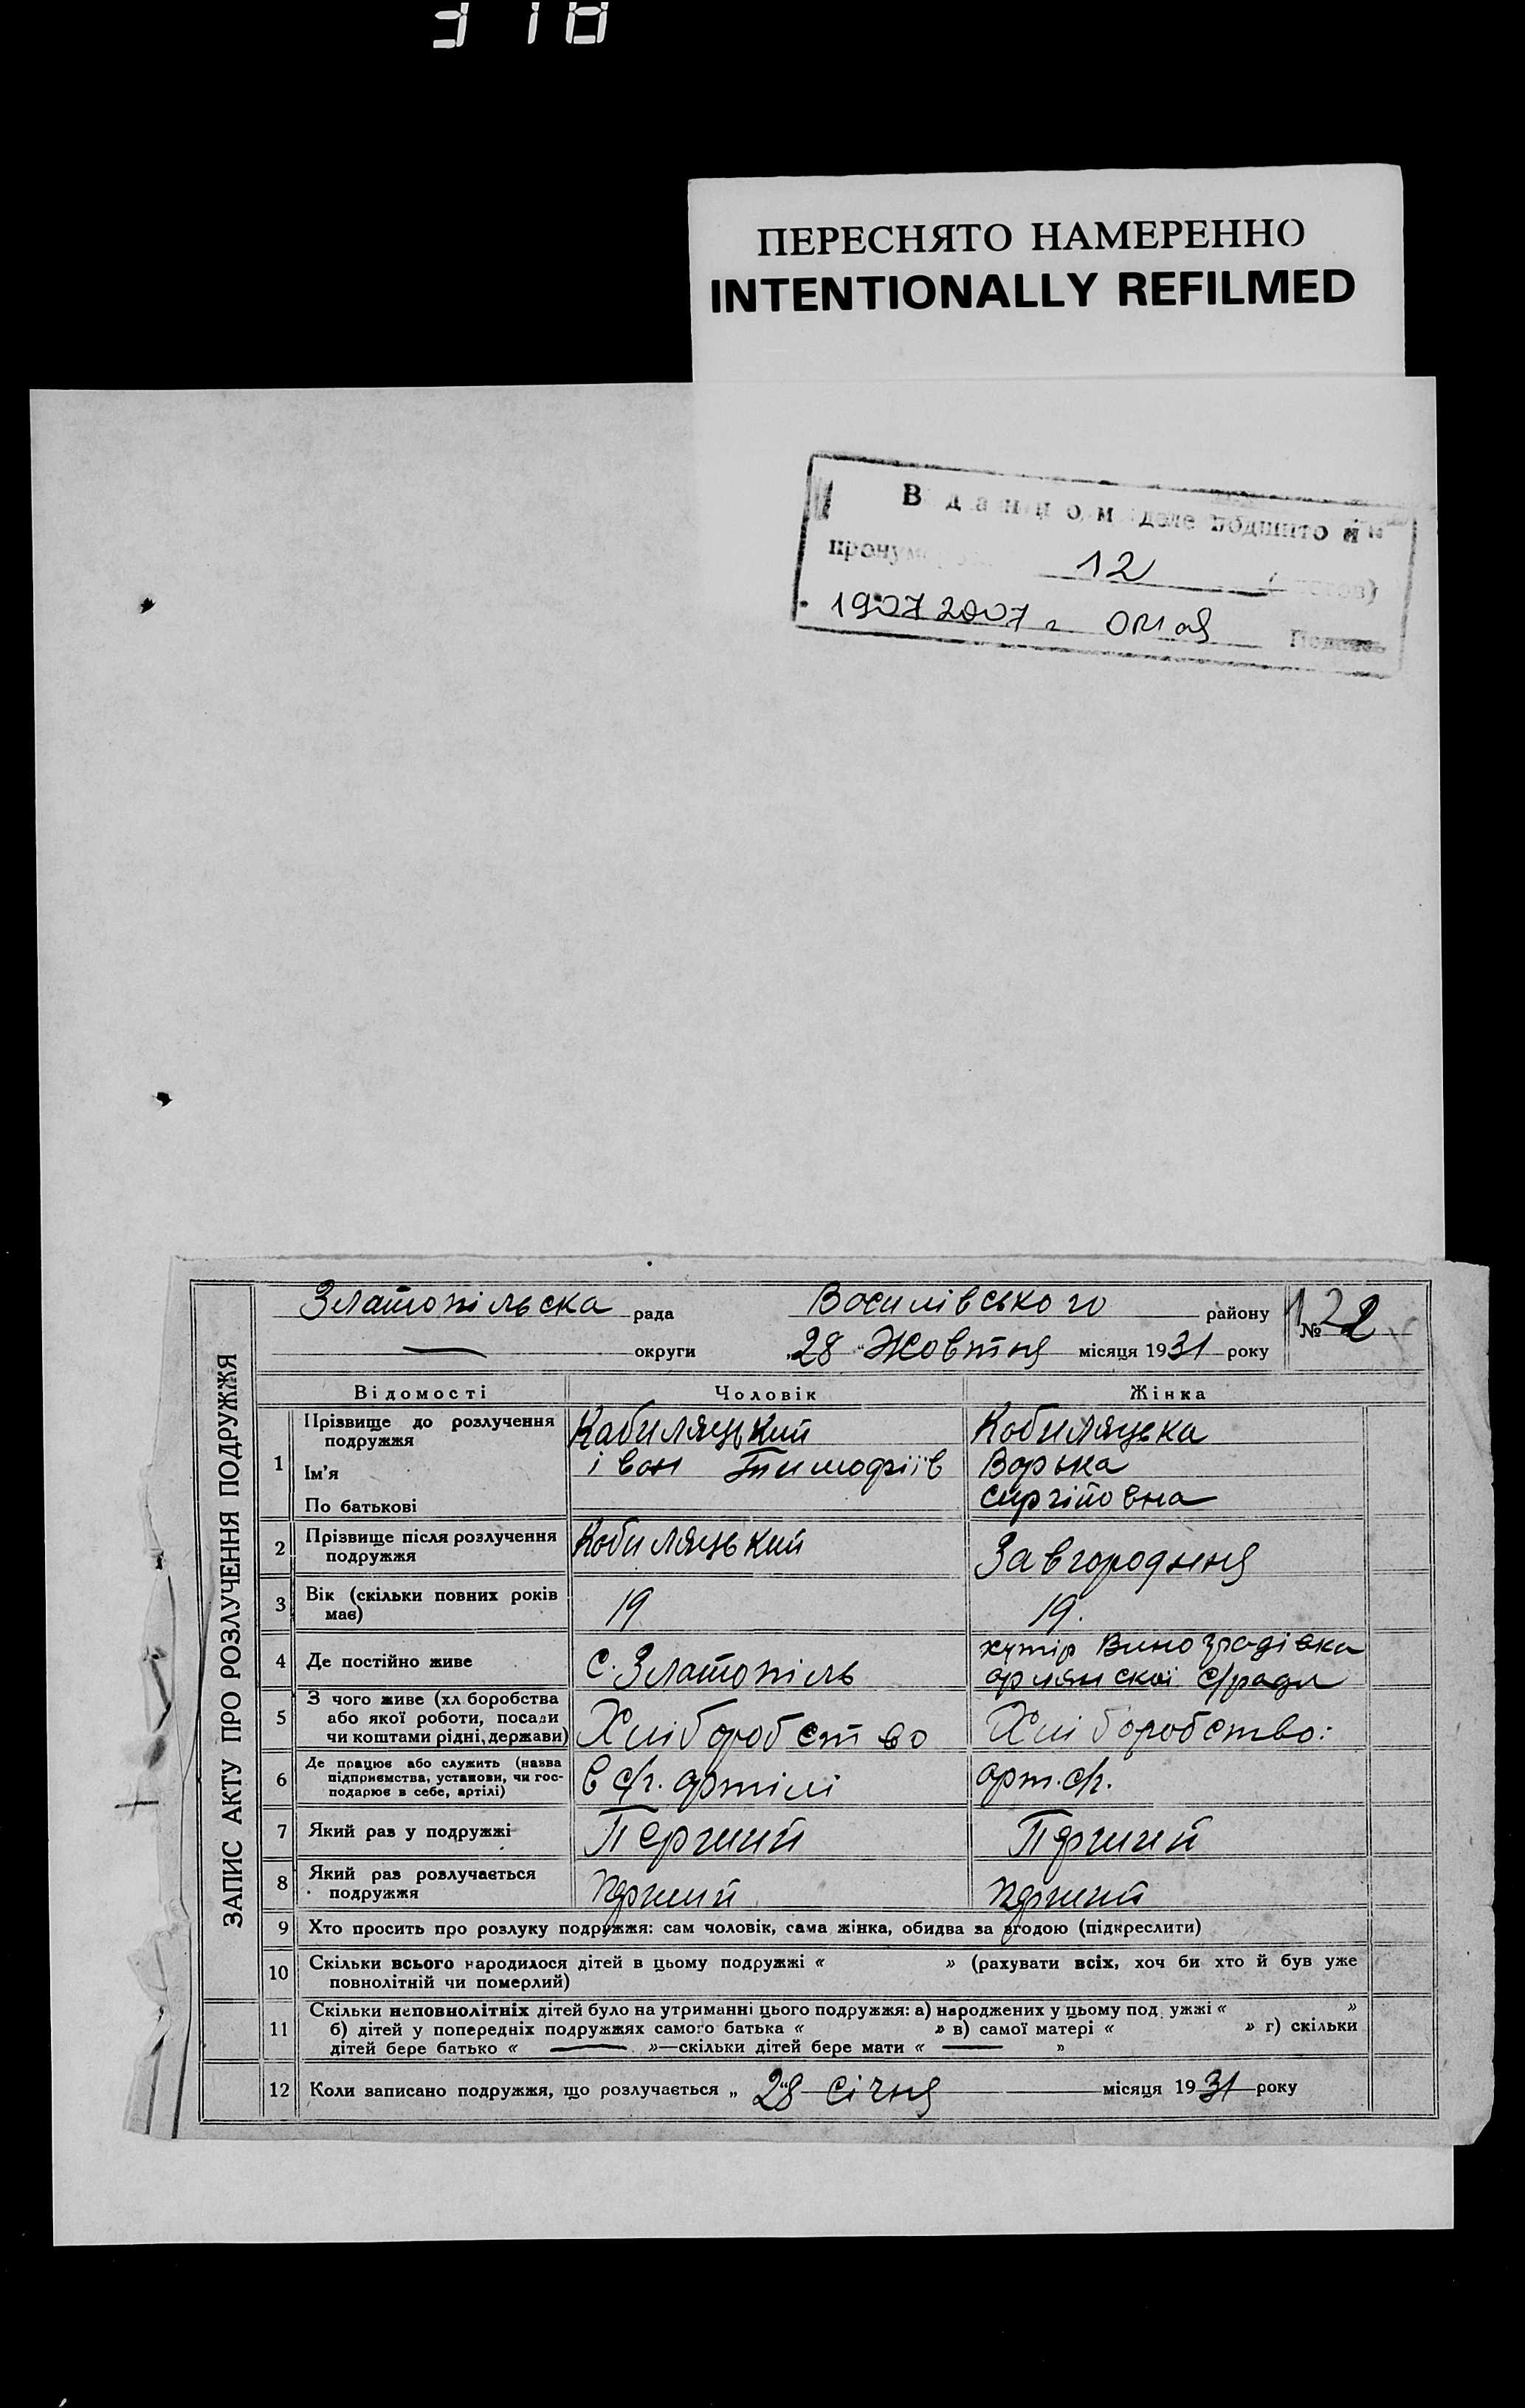 318
ПЕРЕСНЯТО НАМЕРЕННО
INTENTIONALLY REFILMED
В данном деле подшито и
12
19 07 2007 г.
Подпись
ЗАПИС АКТУ ПРО РОЗЛУЧЕННЯ ПОДРУЖЖЯ
Златопільска рада Василівського району № 22
округи „28“ Жовтня місяця 1931 року
Відомості Чоловік Жінка
1 Прізвище до розлучення подружжя Кабиляцький Кобиляцька
Ім'я іван Тимофіїв Варька
По батькові Сиргійовна
2 Прізвище після розлучення подружжя Кобиляцький Завгородння
3 Вік (скільки повних років має) 19 19.
4 Де постійно живе с. Златопіль хутір Виноградівка
орлянскої с/ради
5 З чого живе (хліборобства
або якої роботи, посади
чи коштами рідні, держави) Хліборобство Хліборобство:
6 Де працює або служить (назва
підприємства, установи, чи гос-
подарює в себе, артілі) в с/г. артілі арт. с/г.
7 Який раз у подружжі Перший Перший
8 Який раз розлучається
подружжя перший перший
9 Хто просить про розлуку подружжя: сам чоловік, сама жінка, обидва за згодою (підкреслити)
10 Скільки всього народилося дітей в цьому подружжі « » (рахувати всіх, хоч би хто й був уже
повнолітній чи померлий)
11 Скільки неповнолітніх дітей було на утриманні цього подружжя: а) народжених у цьому подружжі « »
б) дітей у попередніх подружжях самого батька « » в) самої матері « » г) скільки
дітей бере батько « — »—скільки дітей бере мати « — »
12 Коли записано подружжя, що розлучається „28“ січня місяця 1931 року